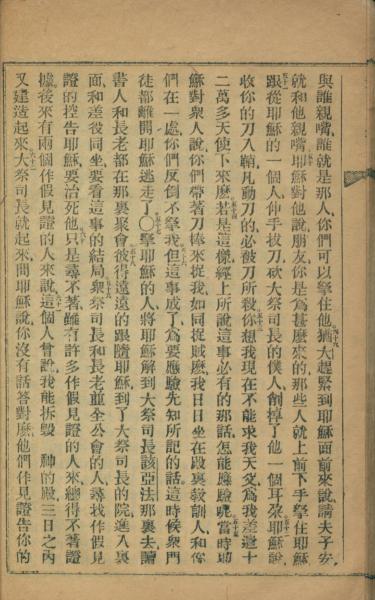 與誰親嘴誰就是那人你們可以拏住他猶大趕緊到耶穌面前來說請夫子安
就和他親嘴耶穌對他說朋友你是爲甚麼來的那些人就上前下手拏住耶穌
跟從耶穌的一個人伸手拔刀砍大祭司長的僕人削掉了他一個耳朶耶穌說
收你的刀入鞘凡動刀的必被刀所殺你想我現在不能求我天父爲我差遣十
二萬多天使下來麽若是這樣經上所說這事必有的那話怎能應驗呢當時耶
穌對衆人說你們帶著刀棒來捉我如同捉賊麽我日日坐在殿裏敎訓人和你
們在一處你們反倒不拏我但這事成了爲要應驗先知所記的話這時候衆門
徒都離開耶穌逃走了〇拏耶穌的人將耶穌解到大祭司長該亞法那裏去讀
書人和長老都在那裏聚會彼得遠遠的跟隨耶穌到了大祭司長的院進入裏
面和差役同坐要看這事的結局衆祭司長和長老並全公會的人尋找作假見
證的控告耶穌要治死他只是尋不著雖有許多作假見證的人來總得不著證
據後來有兩個作假見證的人來說這個人曾說我能拆毀 神的殿三日之內
又建造起來大祭司長就起來問耶穌說你沒有話答對麽他們作見證告你的